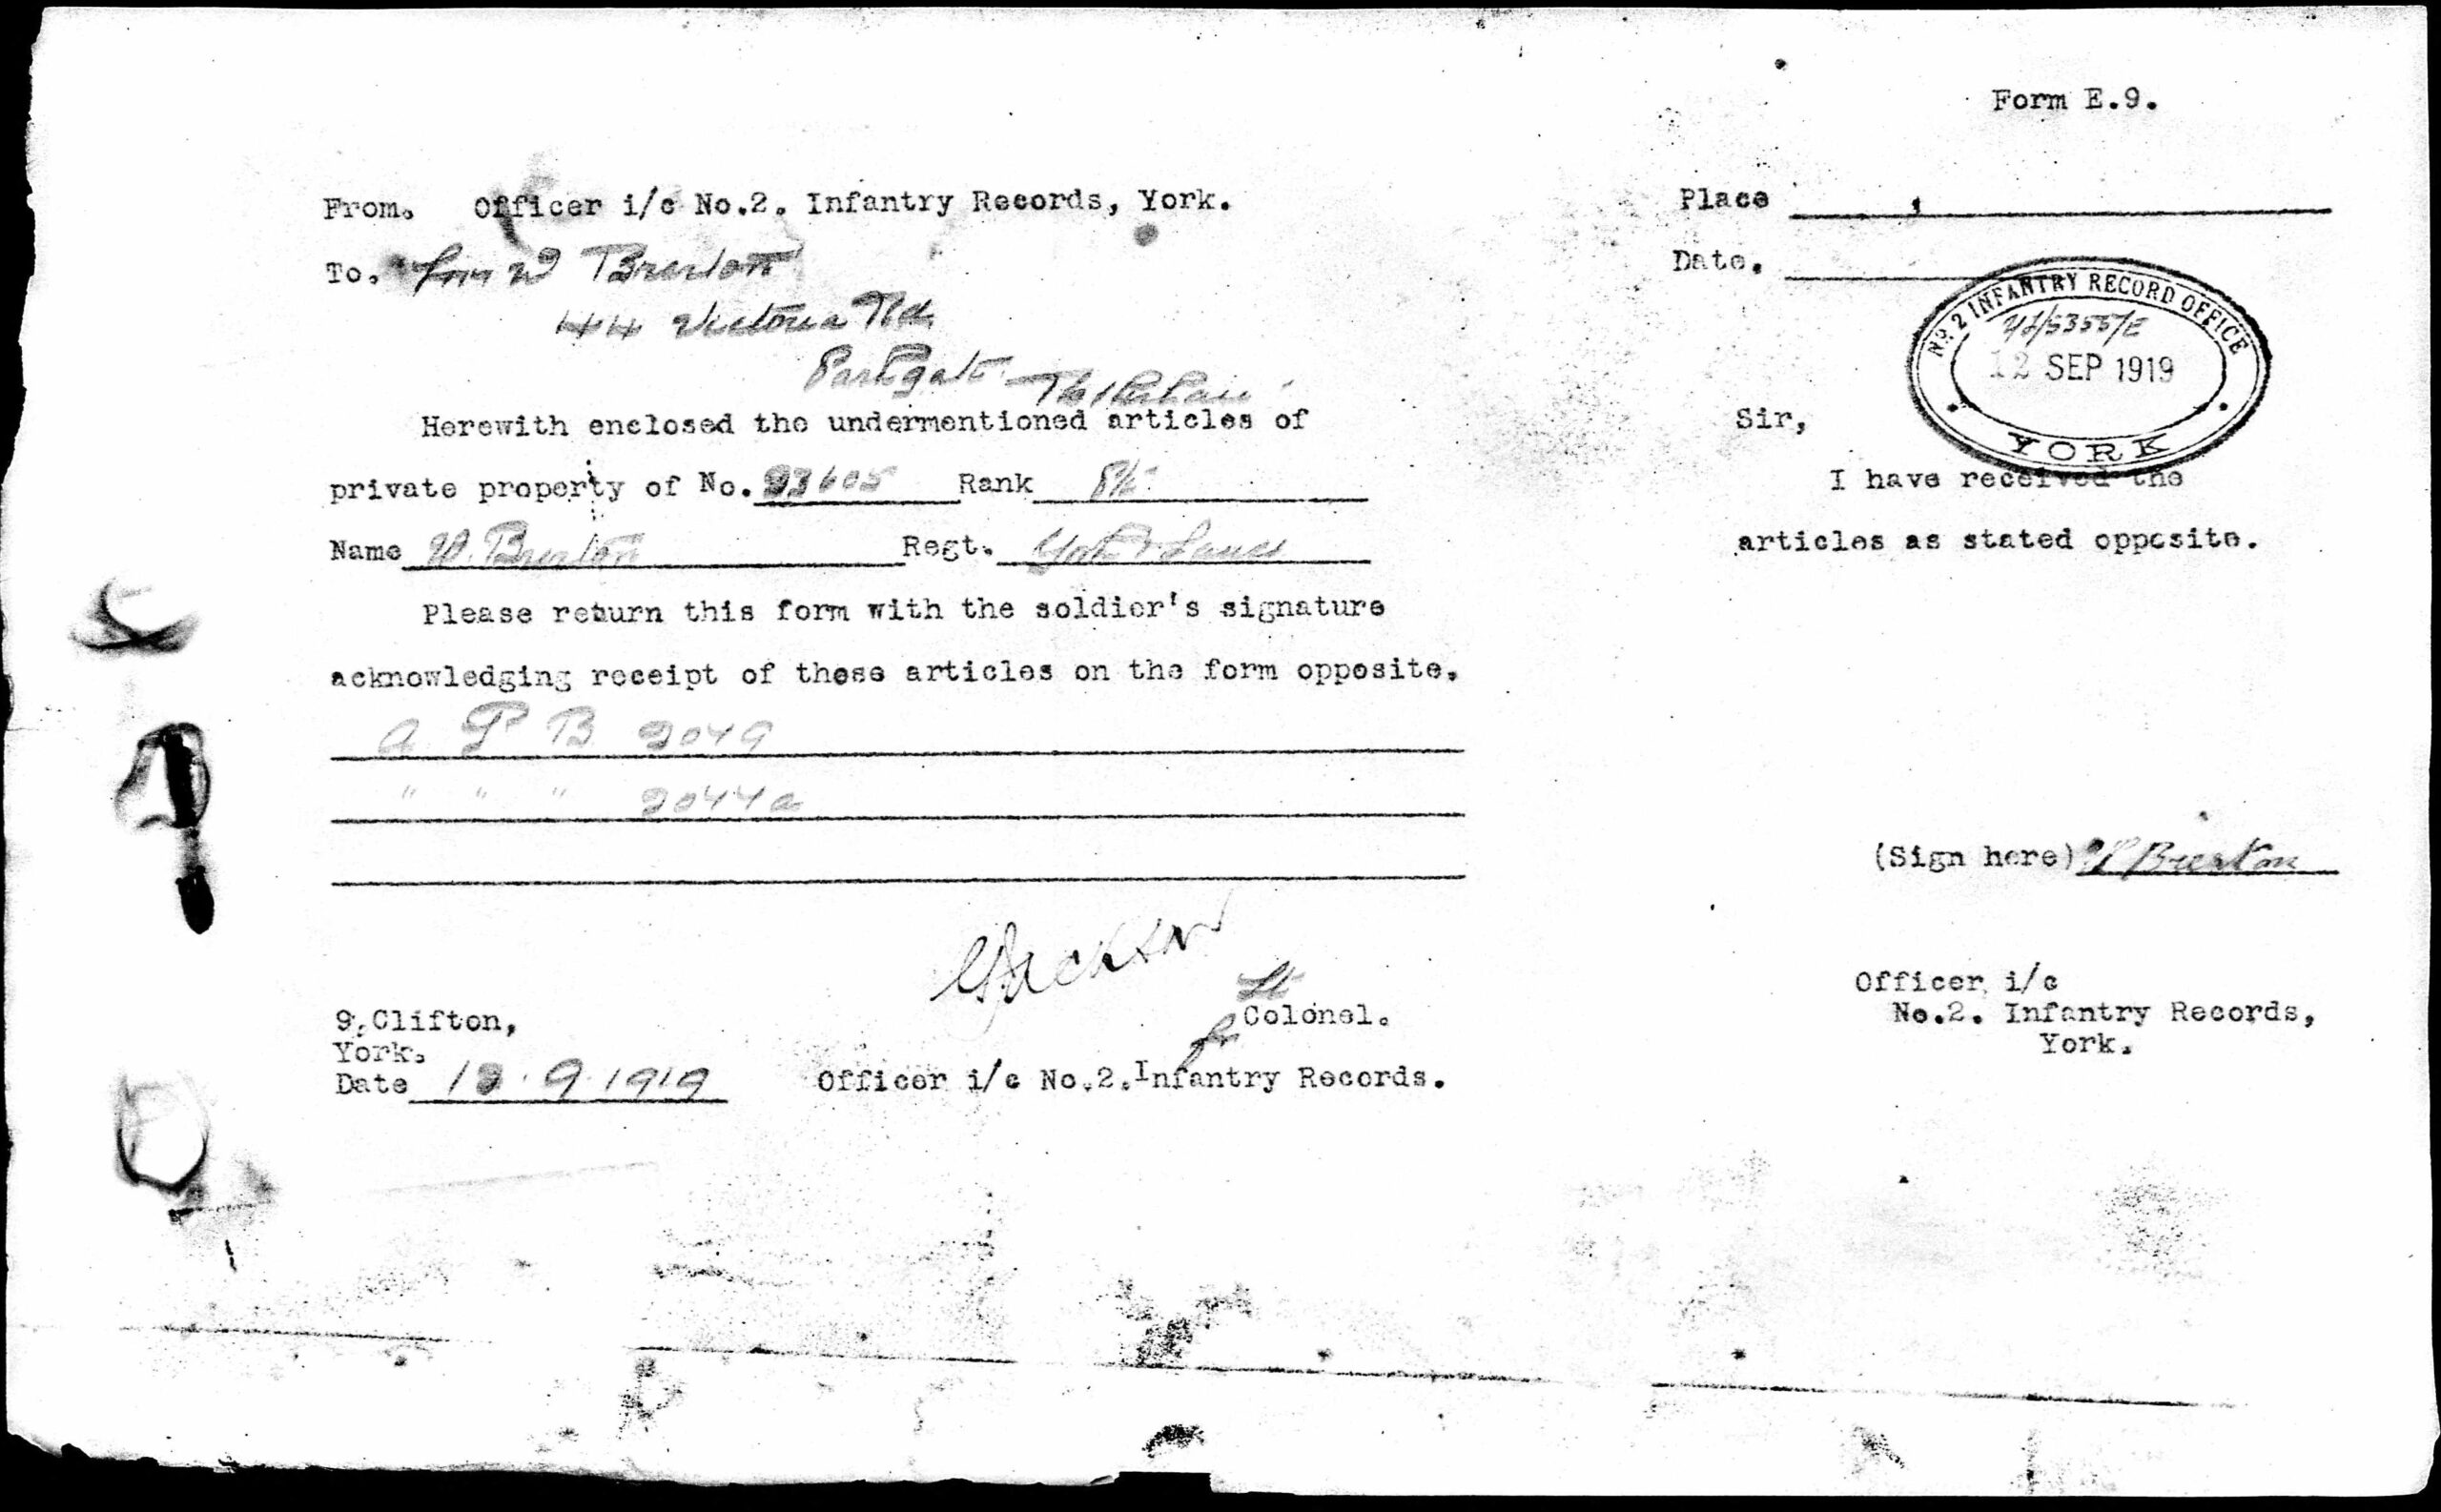 Form E.9.
From. Officer i/c No.2. Infantry Records, York.
To. W Brerton
44 Victoria Rd
Parkgate
Herewith enclosed the undermentioned articles of
private property of No. 23605 Rank Pte
Name W. Brerton Regt. York & Lancs
Please return this form with the soldier's signature
acknowledging receipt of these articles on the form opposite.
A F B 2079
" " " 2044a
Jackson
Lt
Colonel.
for
9, Clifton,
York.
Date 12.9.1919
Officer i/c No.2. Infantry Records.
Place
Date.
No. 2 INFANTRY RECORD OFFICE
12 SEP 1919
YORK
Sir,
I have received the
articles as stated opposite.
(Sign here) W Brerton
Officer i/c
No.2. Infantry Records,
York.